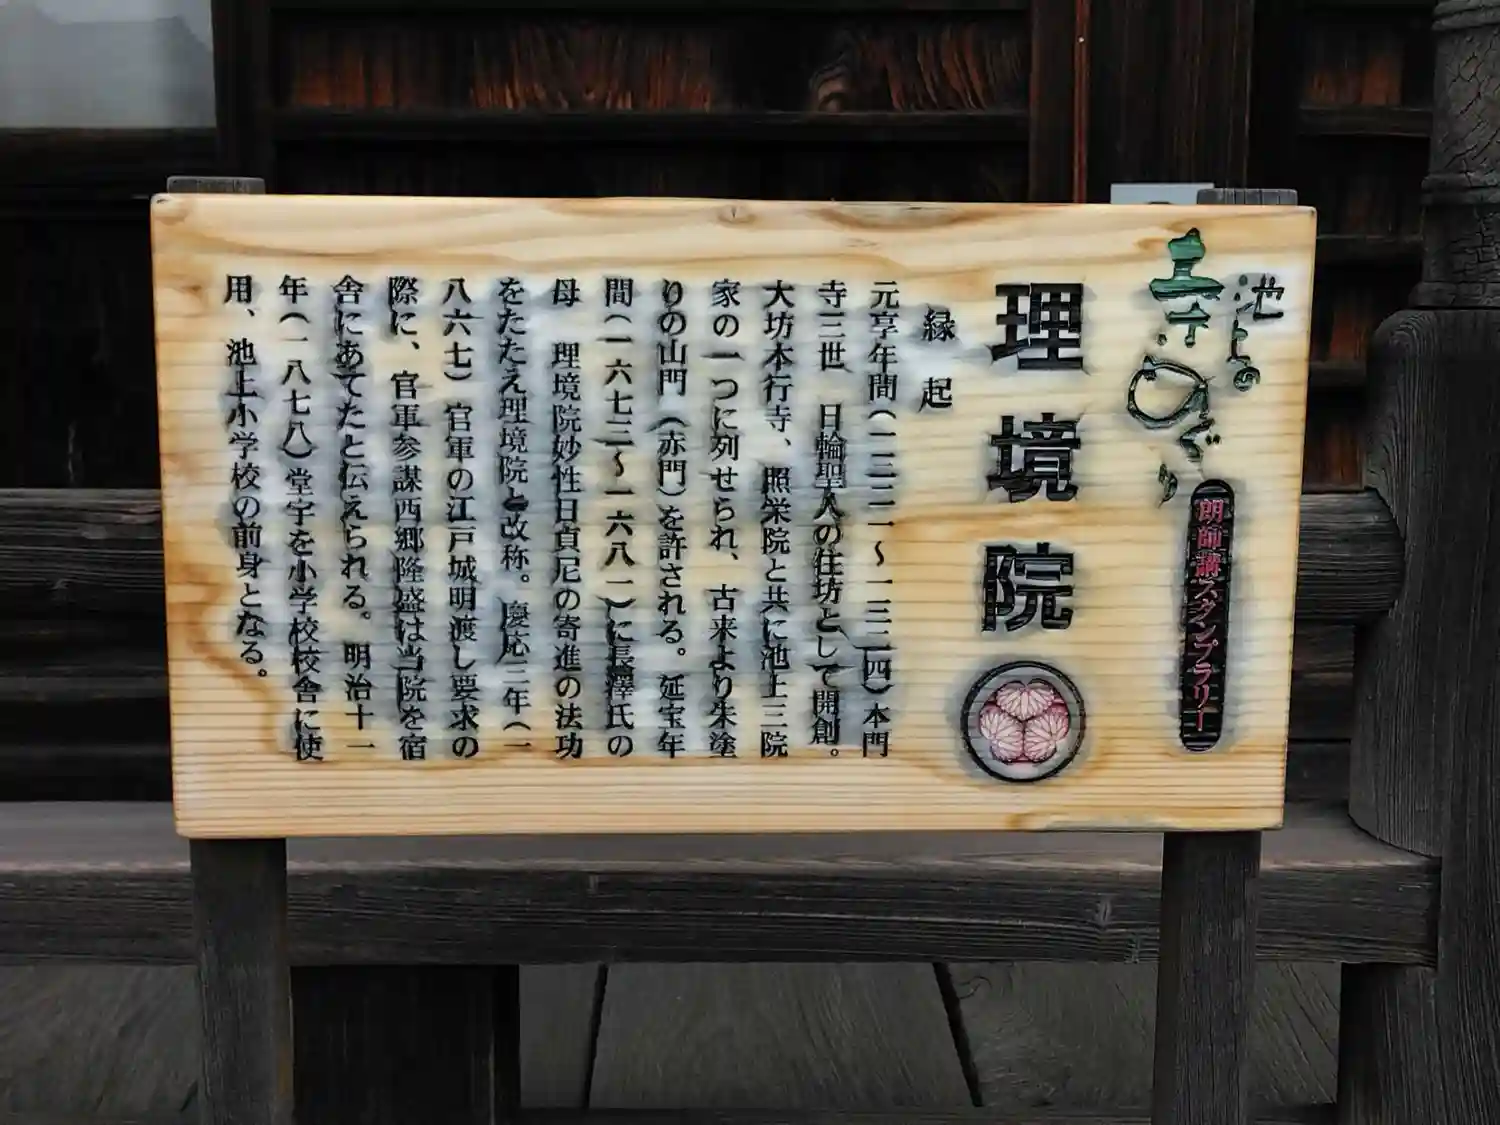 池上の
寺めぐり
朗師講スタンプラリー
理境院
縁起
元亨年間(一三二一〜一三二四)本門
寺三世 日輪聖人の住坊として開創。
大坊本行寺、照栄院と共に池上三院
家の一つに列せられ、古来より朱塗
りの山門(赤門)を許される。延宝年
間(一六七三〜一六八一)に長澤氏の
母 理境院妙性日貞尼の寄進の法功
をたたえ理境院と改称。慶応三年(一
八六七)官軍の江戸城明渡し要求の
際に、官軍参謀西郷隆盛は当院を宿
舎にあてたと伝えられる。明治十一
年(一八七八)堂宇を小学校校舎に使
用、池上小学校の前身となる。